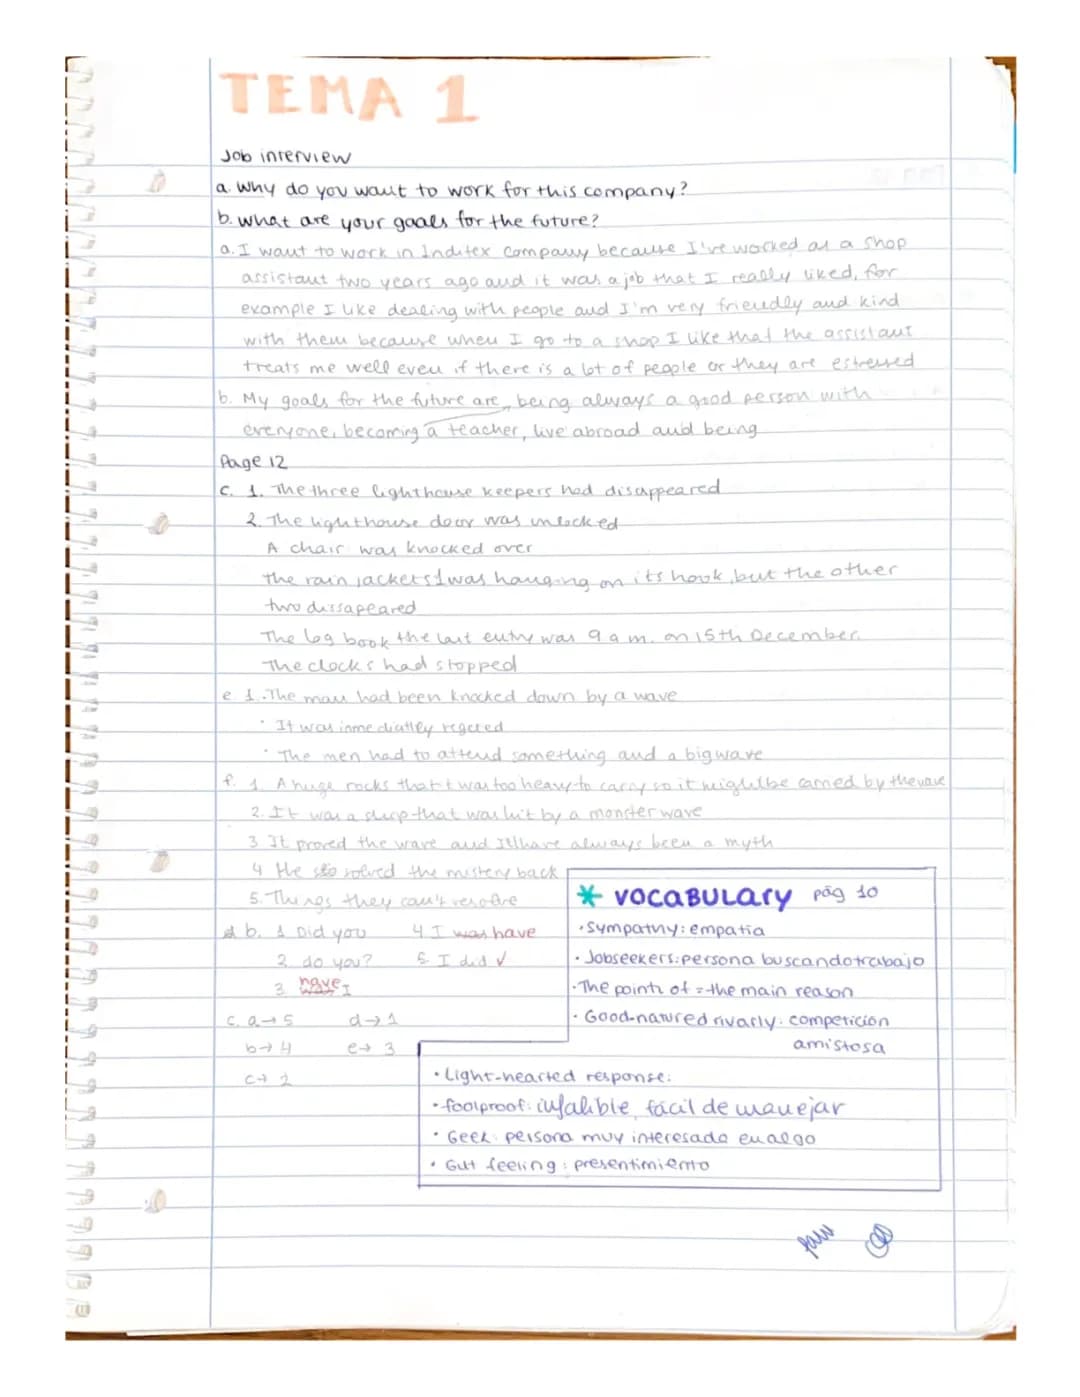 TEMA 1
Job interview
a. Why do you want to work for this company?
b. What are your goals for the future?
a. I want to work in Inditex company because I've worked as a shop
assistant two years ago and it was a job that I really liked, for
example I like dealing with people and I'm very friendly and kind
with them because when I go to a shop I like that the assistant
treats me well even if there is a lot of people or they are estressed
b. My goals for the future are, being always a good person with
everyone, becoming a teacher, live abroad and being
Page 12
c. 1. The three lighthouse keepers had disappeared
2. The lighthouse door was unlocked
A chair was knocked over
The rain jackets 1 was hanging on its hook, but the other
two dissapeared
The log book the last entry was 9 a.m. on 15th December.
The clocks had stopped
e 1. The man had been knocked down by a wave
· It was inmediatley
· The men had to attend something and a big wave
f. 1. A huge rocks that t was too heavy to carry so it might be carried by the wave
2. It was a ship that was hit by a monster wave
3 It proved the wave and have always been a myth
4 He solved the mistery back
5. Things they can't
b. 1 Did you 4 I was have
2 do you? 5 I did ✓
3 have I
c. a→5 d→1
b→4 e→3
c→2
* VOCABULARY pág 10
· Sympathy: empatia
· Jobseekers: persona buscando trabajo
· The point of = the main reason
· Good-natured rivarly: competición
amistosa
· Light-hearted response:
· foolproof: infalible, fácil de manejar
· Geek: persona muy interesada en algo
· Gut feeling: presentimiento